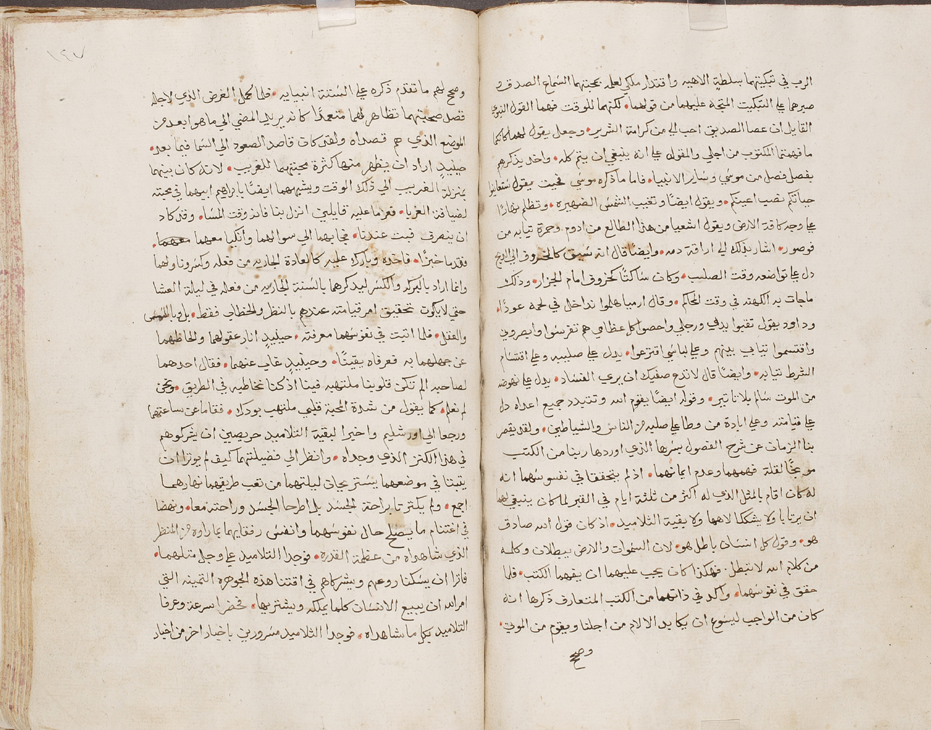 الرب في تبكيتهما بسلطنة الاهية واقتدار ملكي لعلمه بمحبتهما السماع الصدق و
صبرهما على التبكيت المتجه عليهما من قولهما لكنهما للوقت فهما القول النبوي
القايل ان عصا الصديق احب الي من كرامة الشرير وجعل يقول لهما كما
ما فهمتما المكتوب من اجلي والمقول علي انه ينبغي ان يتم كله واخذ يذكرهم
بفصل فصل من موسى وساير الانبيا فاما ما ذكره موسى فحيث يقول ستعاينوا
حياتكم نصب اعينكم ويقول ايضا وتغيب الشمس الضهيره وتظلم نهارا
على وجه كافة الارض ويقول اشعيا من هذا الطالع من ادوم وحمرة تيابه من
فوصور اشار بذلك الى اراقة دمه وايضا قال انه سيق كالخروف الى الذبح
دل على تواضعه وقت الصليب وكان ساكتا كخروف امام الجزار وذلك
ماجات به الكهنه في وقت الحكم وقال ارميا هلموا نداخل في لحمه عودا
وداود يقول تقبوا يدي ورجلي واحصوا كل عظامي هم تفرسوا وابصروني
واقتسموا تيابي بينهم وعلى لباسي اقترعوا يدل على صليبه وعلى اقتسام
الشرط تيابه وايضا قال لا تدع صفيك ان يرى الفساد يدل على نهوضه
من الموت سالم بلا تاتير وقوله ايضا يقوم الله ويتبدد جميع اعداه دل
على قيامته وعلى ابادة من وطا على صليبه من الناس والشياطين ولقد يقصر
بنا الزمان عن شرح الفصول باسرها الذي اوردها ربنا من الكتب
موبخا لقلة فهمهما وعدم ايمانهما اذ لم يتحققا في نفوسهما انه
لو كان اقام بالمثل الذي له اكثر من ثلثة ايام في القبر لما كان ينبغي لهما
ان يرتابا ولا يشككا لاهما ولا بقية التلاميد اذ كان قول الله صادق
هو وقول كل انسان باطل هو لان السموات والارض يبطلان وكلمه
من كلام الله لا تبطل فهكذا كان يجب عليهما ان يفهما الكتب فلما
حقق في نفوسهما واكد في ذاتهما من الكتب المتعارف ذكرها انه
كان من الواجب ليسوع ان يكابد الالام من اجلنا ويقوم من الموتى
وصح
١٤٧
وصح لهم ما تقدم ذكره على السنة انبيايه فلما كمل الغرض الذي لاجله
قصد صحبتهما تظاهر لهما متعمدا كانه يريد المضي الى ما هو ابعد من
الموضع الذي هم قصداه ولقد كان قاصد الصعود الى السما فيما بعد
حينيد اراد ان يظهر منهما كثرة محبتهما للغريب لانه كان بينهما
بمنزلة الغريب الى ذلك الوقت ويشبههما ايضا بابراهيم ابيهما في محبته
لضيافة الغربا فعزما عليه قايلين انزل بنا فانه وقت المسا وقد كاد
ان ينصرف فبت عندنا فاجابهما الى سوالهما واتكيا معهما
فقدما خبزا فاخذه وبارك عليه كالعادة الجاريه من فعله وكسر وناولهما
وانما اراد بالبركه والكسر ليدكرهما بالسنة الجاريه من فعله في ليلة العشا
حتى لا يكون تحقيق امر قيامته عندهم بالنظر والخطاب فقط بل وباللمس
والعقل فلما اتبت في نفوسهما معرفته حينيد انار عقولهما والحاظهما
عن جهلهما به فعرفاه يقينا وحينيد غاب عنهما فقال احدهما
لصاحبه الم تكن قلوبنا ملتهبه فينا اذ كان يخاطبنا في الطريق ونحن
لم نعلم كما يقول من شدة المحبة قلبي ملتهب بودك فقاما من ساعتهما
ورجعا الى اورشليم واخبرا لبقية التلاميد حريصين ان يشركوهم
في هذا الكنز الذي وجداه وانظر الى فضيلتهما كيف لم يوترا ان
يتبتا في موضعهما يستريحان ليلتهما من تعب طريقهما نهارهما
اجمع ولم يكترتا براحة الجسد بل اطرحا الجسد وراحته معا ونهضا
في اغتنام ما يصلح حال نفوسهما وانفس رفقايهما بما راوه من المنظر
الذي شاهداه من عظمة القدره فوجدا التلاميد على وجل متلهما
فاترا ان يسكنا روعهم ويشركاهم في اقتنا هذه الجوهره التمينه التي
امر الله ان يبيع الانسان كلما يملكه ويشتريها نحض اسرعا وعرفا
التلاميد بكل ما شاهداه فوجدا التلاميد مسرورين باخبار اخر من اخبار